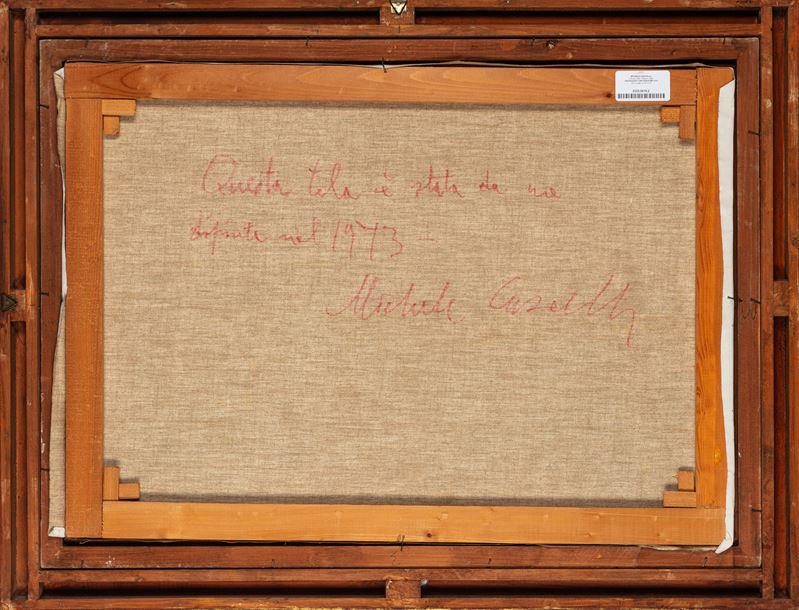 Questa tela è stata da me
dipinta nel 1973 -
Michele Cascella